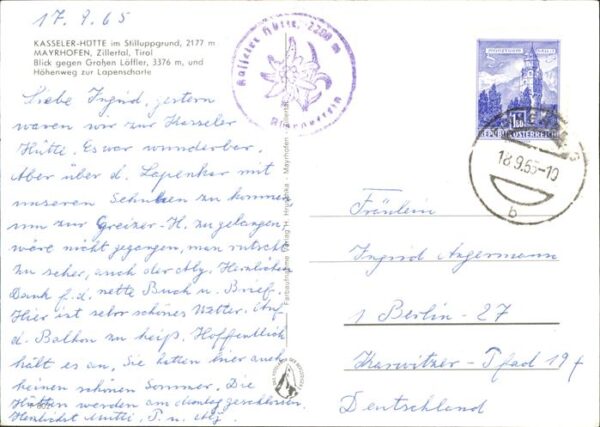 17.9.65
KASSELER-HÜTTE im Stilluppgrund, 2177 m
MAYRHOFEN, Zillertal, Tirol
Blick gegen Großen Löffler, 3376 m, und
Höhenweg zur Lapenscharte
Liebe Ingrid, gestern
waren wir zur Kasseler
Hütte. Es war wunderbar.
Aber über d. Lapenkar mit
unseren Schuhen zu kommen
um zur Greizer-H. zu gelangen,
wäre nicht gegangen, man rutscht
zu sehr, auch der Abg. Herzlichen
Dank f. d. nette Buch u. Brief.
Hier ist sehr schönes Wetter. Auf
d. Balkon zu heiß. Hoffentlich
hält es an. Sie hatten hier auch
keinen schönen Sommer. Die
Hütten werden am Montag geschlossen.
Herzlichst Mutti, P. u.
Kasseler Hütte, 2200 m
Farbaufnahme Verlag H. Hruschka - Mayrhofen, Zillertal
REPUBLIK ÖSTERREICH
18.9.65-10
b
Fräulein
Ingrid Angermann
1 Berlin-27
Karwitzer-Pfad 19f
Deutschland